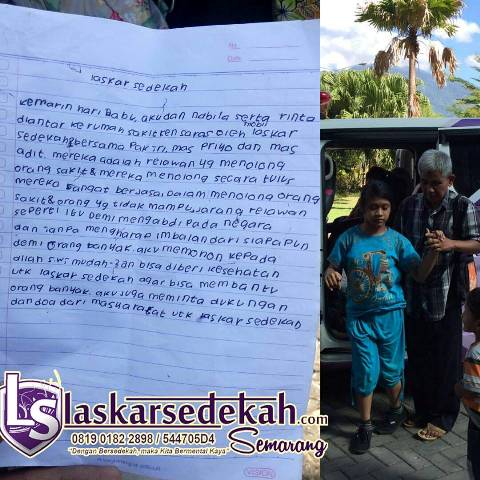 No.
Date.
laskar sedekah
kemarin hari Rabu, aku dan nabila serta rinta
diantar ke rumah sakit ken saras oleh mobil laskar
sedekah bersama Pak Sri, mas Priyo dan mas
adit. mereka adalah relawan yg menolong
orang sakit & mereka menolong secara tulus
mereka sangat berjasa dalam menolong orang
sakit & orang yg tidak mampu, jarang relawan
seperti itu demi mengabdi pada negara
dan tanpa mengharap imbalan dari siapapun
demi orang banyak. aku memohon kepada
allah s.w.t mudah-2an bisa diberi kesehatan
utk laskar sedekah agar bisa membantu
orang banyak. aku juga meminta dukungan
dan doa dari masyarakat utk laskar sedekah
LS laskarsedekah.com
0819 0182 2898 / 544705D4 Semarang
"Dengan Bersedekah, maka Kita Bermental Kaya"
VISION